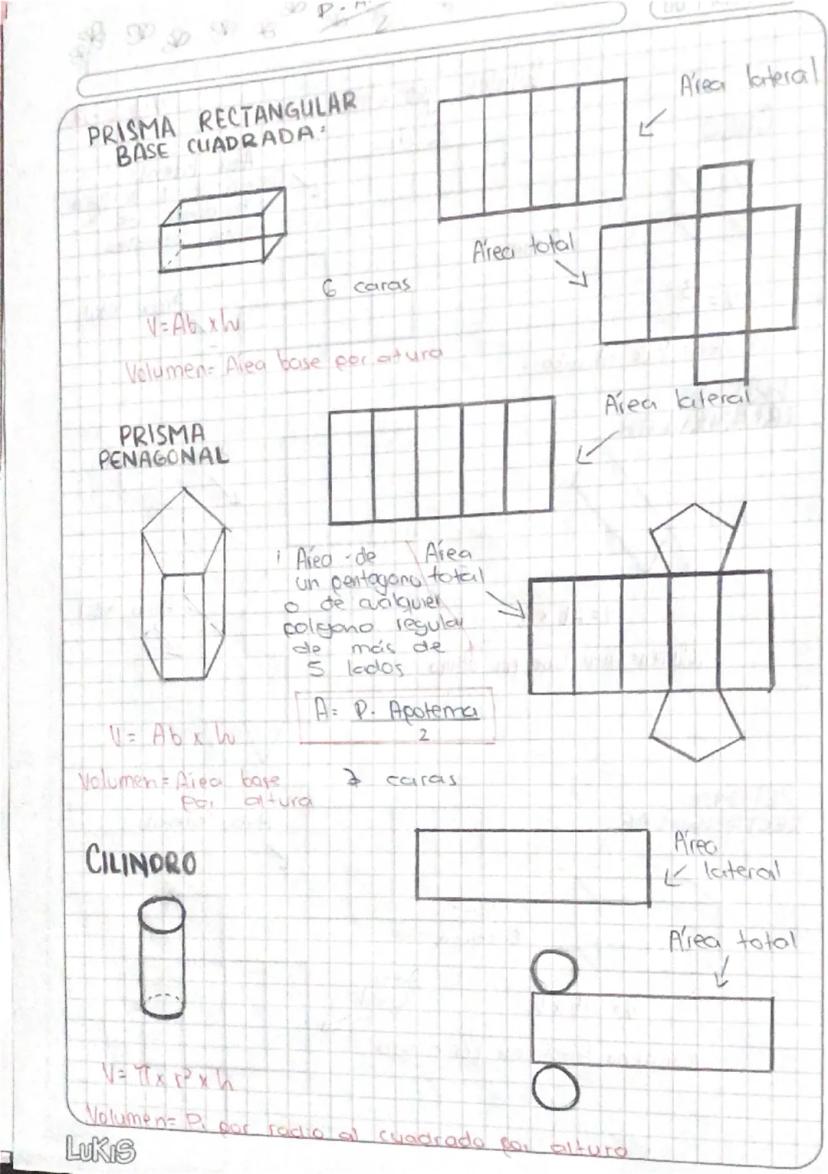 P. A.
2
PRISMA RECTANGULAR
BASE CUADRADA:
Área lateral
Área total
6 caras
V=Ab x h
Volumen= Área base por atura
PRISMA
PENAGONAL
Área lateral
Área de
un pentagono
o de cualquier
poligono regular
de más de
5 lados
Área
total
A= P. Apotema
2
V= Ab x h
Volumen= Área base
por altura
7 caras
CILINDRO
Área
lateral
Área total
V= π x r² x h
Volumen= Pi por radio al cuadrado por altura
LUKIS